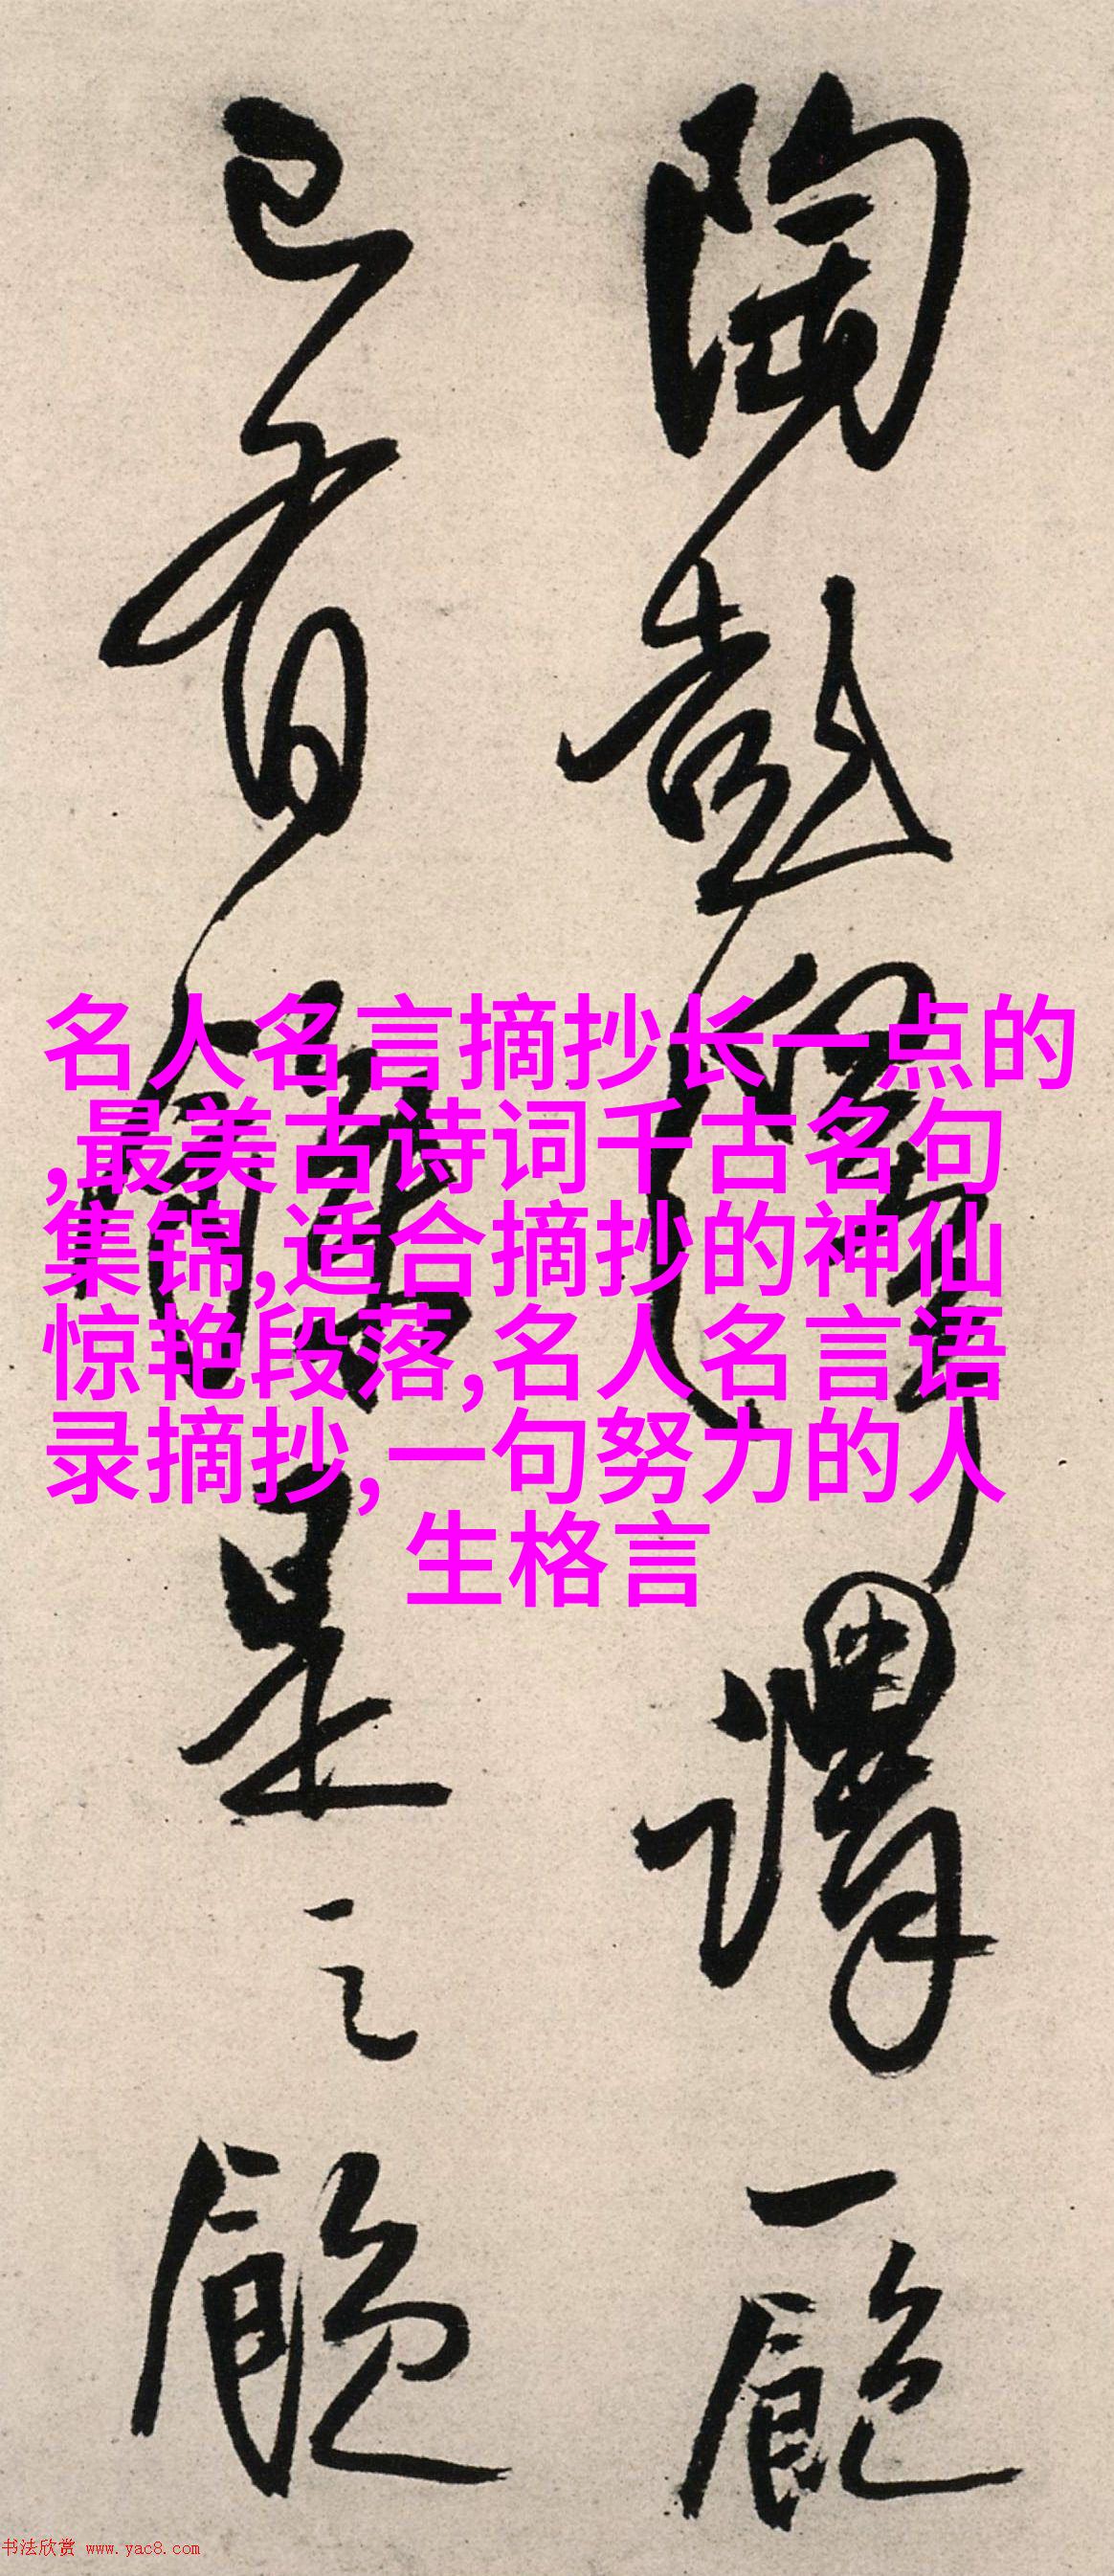 陶彭澤謂一飽
已有餘是之
名人名言摘抄长一点的
,最美古诗词千古名句
集锦,适合摘抄的神仙
惊艳段落,名人名言语
录摘抄,一句努力的人
生格言
书法欣赏 www.yac8.com